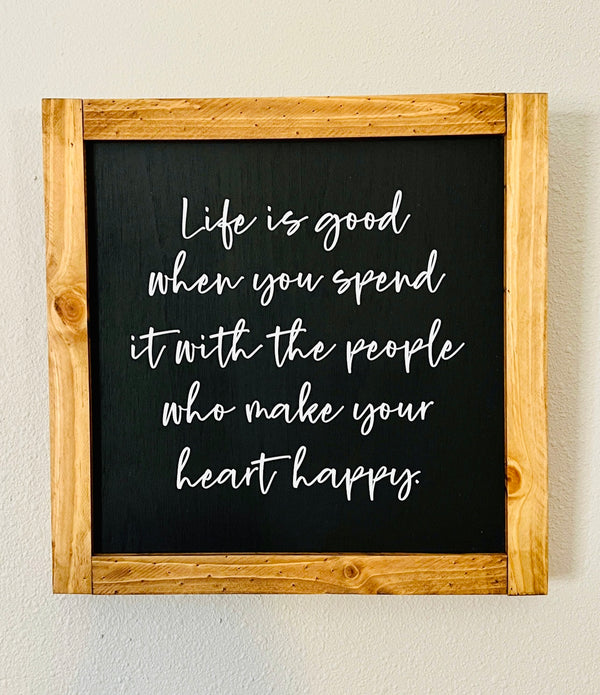 Life is good
when you spend
it with the people
who make your
heart happy.